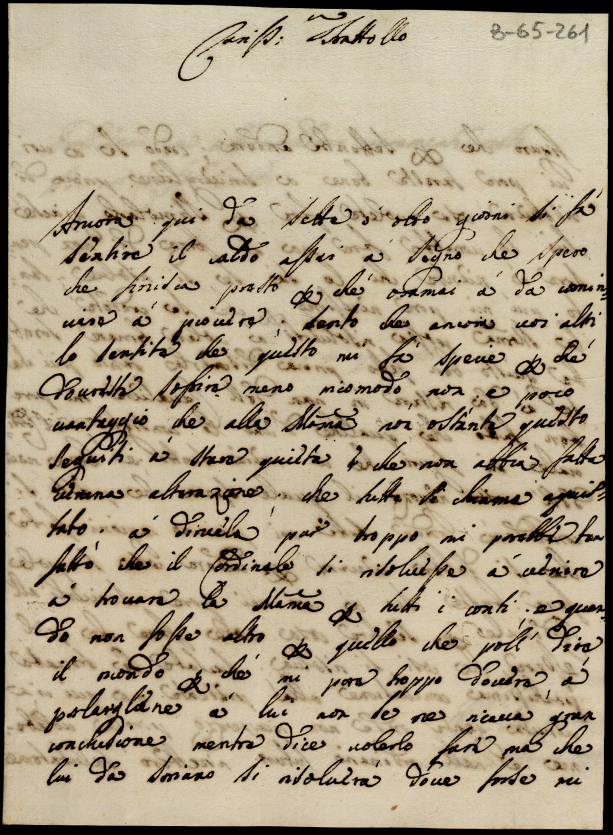 8-65-261
Cariss:mo Fratello
Ancora qui da sette o otto giorni si fà
sentire il caldo assai à segno che spero
che finisca presto ché oramai à da comin„
ciare à piovere. sento che ancora voi altri
lo sentite che questo mi fà specie ché
dovreste soffrire meno incomodo non e poco
vantaggio che alla Mamà non ostante questo
seguiti à stare quieta e che non abbia fatta
veruna alterazione. che tutto si chiama aquis„
tato. à dirvela pur troppo mi parebbe ben
fatto che il Cardinale si risolvesse à venire
à trovare la Mamà tutti i conti. e quan„
do non fosse altro quello che pott' dire
il mondo ché mi pare troppo dovere à
parlargliene à lui non se ne ricava gran
conclusione mentre dice volerlo fare ma che
lui da Soriano si risolverà dove forse mi